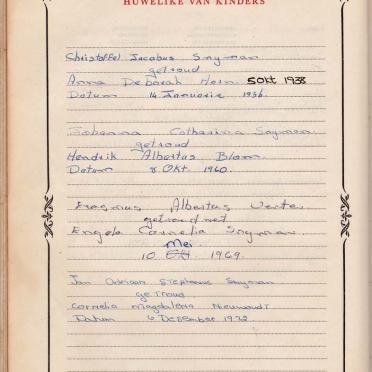 HUWELIKE VAN KINDERS
Christoffel Jacobus Snyman
getroud
Anna Deborah Horn 5 Okt 1938
Datum 14 Januarie 1956.
Johanna Catharina Snyman
getroud
Hendrik Albertus Blom.
Datum 8 Okt 1960.
Erasmus Albertus Venter
getroud met
Engela Cornelia Snyman
Mei
10 1969.
Jan Adriaan Stephanus Snyman
getroud
Cornelia Magdalena Nieuwoudt
Datum 6 Desember 1972